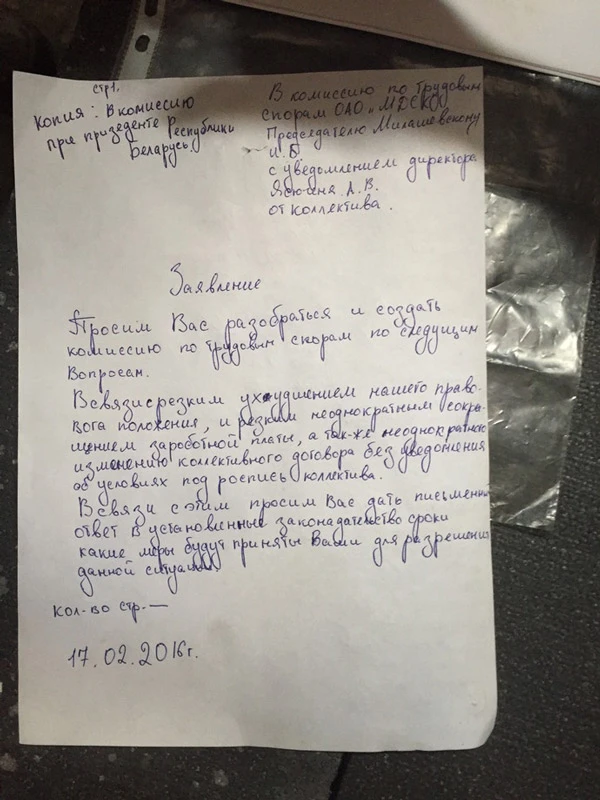 стр 1.
Копия: В комиссию
при призеденте Республики
Беларусь.
В комиссию по трудовым
спорам ОАО „МДСК"
Председателю Милашевскому
И.Б
с уведомлением директора
А.В.
от коллектива.
Заявление
Просим Вас разобраться и создать
комиссию по трудовым спорам по следущим
вопросам.
В связи с резким ухудшением нашего право-
вого положения, и резким неоднократным сокра-
щением зароботной платы, а так-же неоднократного
изменению коллективного договора без уведомления
об условиях под роспись коллектива.
В связи с этим просим Вас дать письменный
ответ в установленные законадательство сроки
какие меры будут приняты Вами для разрешения
данной ситуации.
Кол-во стр.—
17.02.2016г.